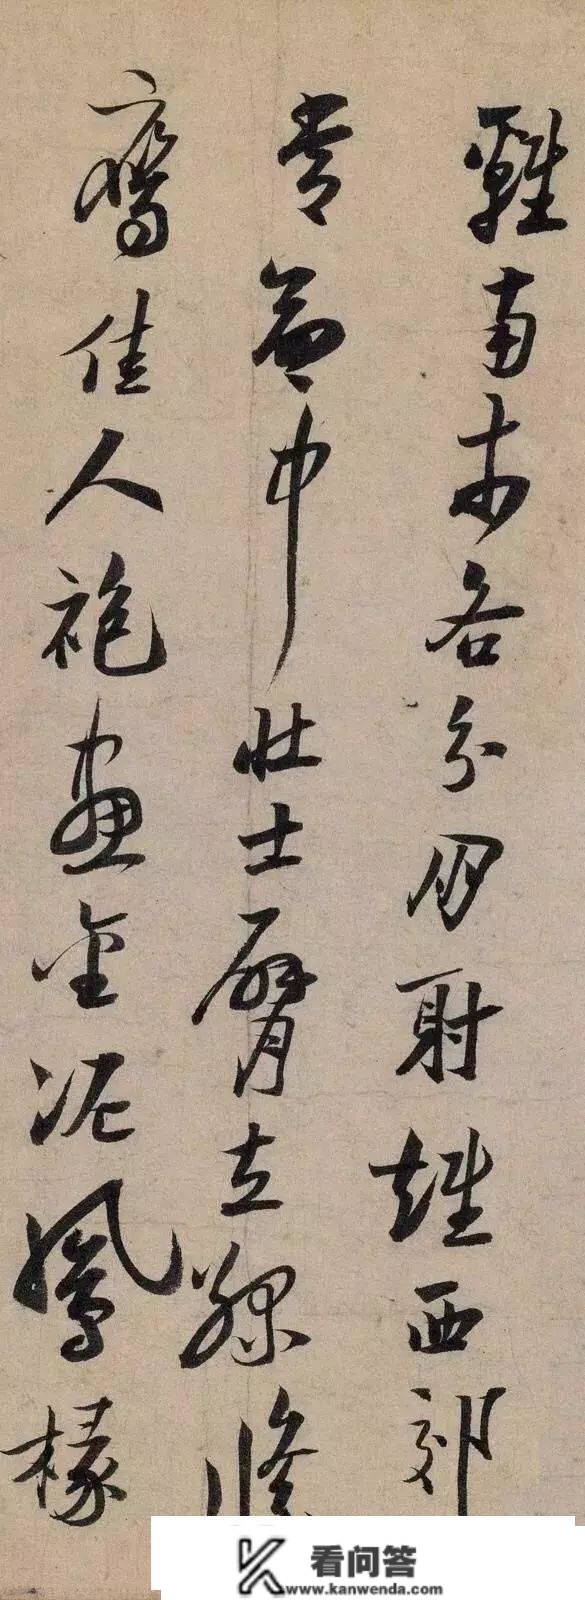 雞南市各分朋射雉西郊
常命中壯士臂立綠絛
鷹佳人袍畫金泥鳳椽
看问答
www.kanwenda.com